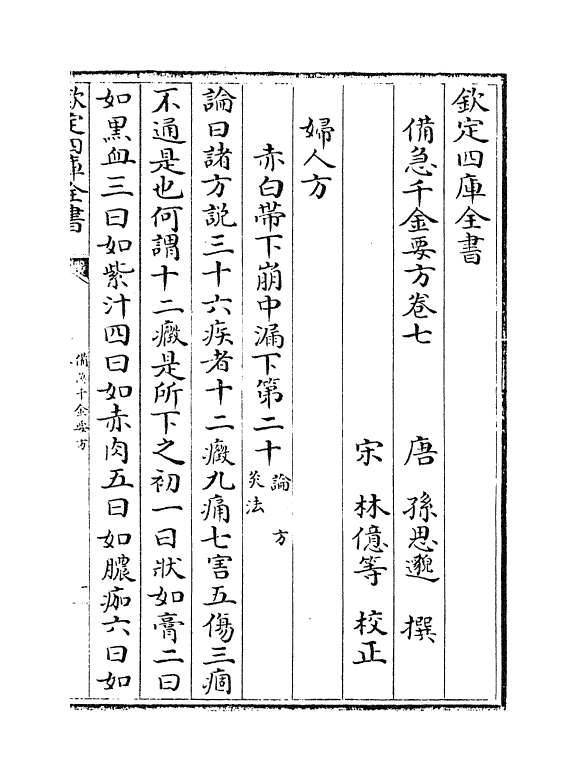 欽定四庫全書
備急千金要方卷七
唐 孫思邈 撰
宋 林億等 校正
婦人方
赤白帶下崩中漏下第二十論 方 灸法
論曰諸方説三十六疾者十二癥九痛七害五傷三痼
不通是也何謂十二癥是所下之初一曰狀如膏二曰
如黑血三曰如紫汁四曰如赤肉五曰如膿痂六曰如
欽定四庫全書
備急千金要方